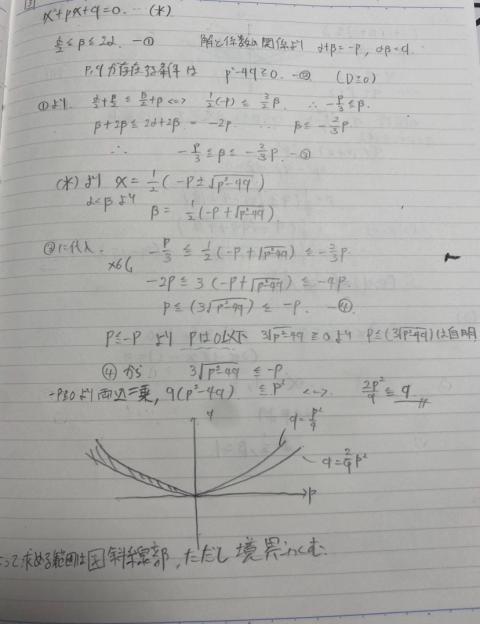 x²+px+q=0. …(*)
α/2≦β≦2α. -① 解と係数の関係より α+β=-p, αβ=q.
p,qが存在する条件は p²-4q≧0. -② (D≧0)
①より. α/2+β/2≦β/2+β ⇔ 1/2(-p)≦3/2β. ∴ -p/3≦β.
β+2β≦2α+2β = -2p ∴ β≦-2/3p.
∴ -p/3≦β≦-2/3p. -③
(*)より x=1/2(-p±√p²-4q)
α<βより β=1/2(-p+√p²-4q).
③に代入. -p/3≦1/2(-p+√p²-4q)≦-2/3p.
×6し -2p≦3(-p+√p²-4q)≦-4p.
p≦(3√p²-4q)≦-p. -④
p≦-p より pは0以下 3√p²-4q≧0より p≦(3√p²-4q)は自明
④から 3√p²-4q≦-p
-p≧0より両辺二乗, 9(p²-4q)≦p² ⇔ 2p²/9≦q
q
q=p²/4
q=2/9p²
p
って求める範囲は図斜線部, ただし境界ふくむ.